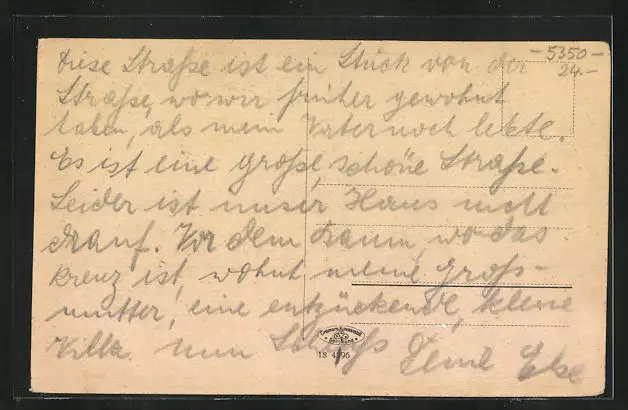 - 5350 -
24.-
Diese Straße ist ein Stück von der
Straße, wo wir früher gewohnt
haben, als mein Vater noch lebte.
Es ist eine große, schöne Straße.
Leider ist unser Haus nicht
drauf. Vor dem Baum, wo das
kreuz ist, wohnt meine Groß-
mutter, eine entzückende, kleine
nun Schluß Deine
18 4396